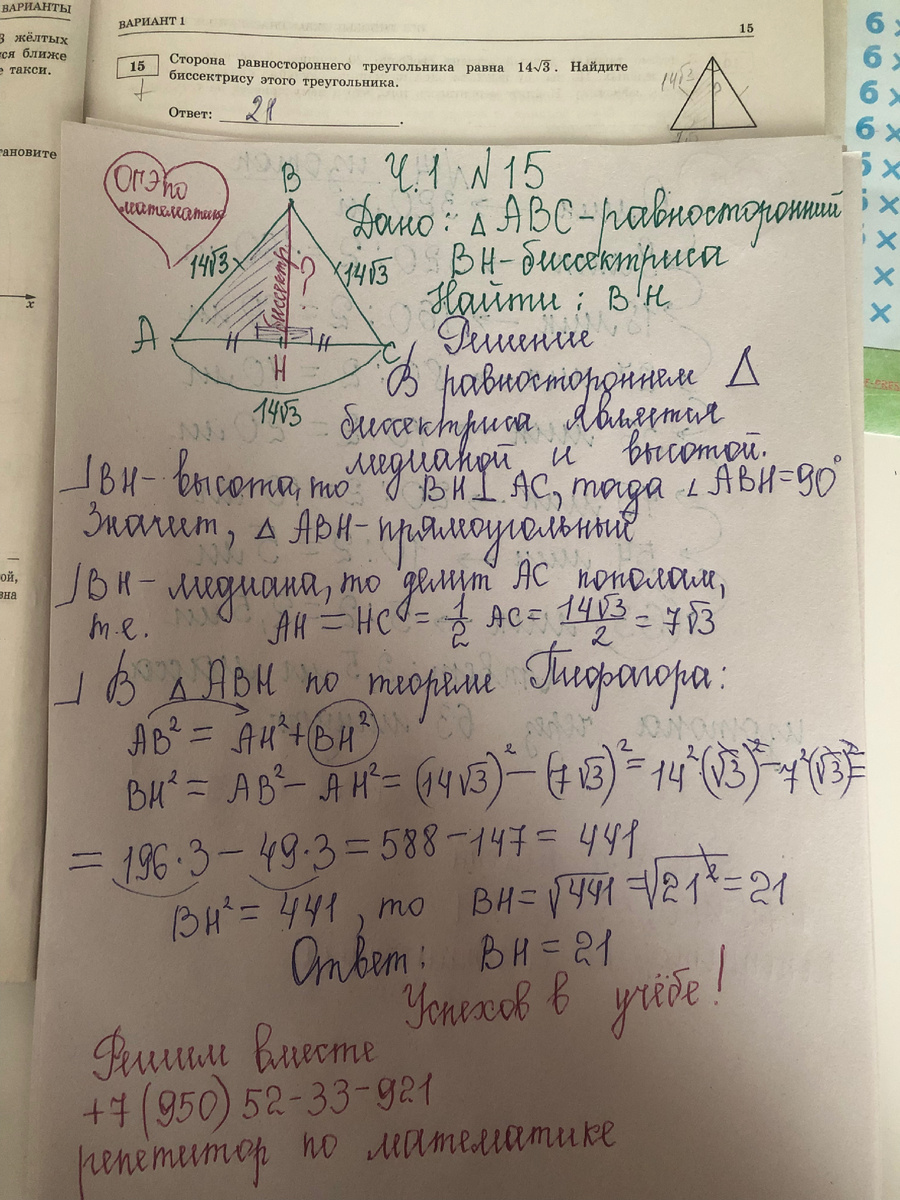 ВАРИАНТЫ
жёлтых
ся ближе
е такси.
тановите
x
ой,
вна
ВАРИАНТ 1
15
15
Сторона равностороннего треугольника равна 14√3. Найдите
биссектрису этого треугольника.
+
Ответ: 21.
14√3
6 ×
6 ×
6 ×
6 ×
×
×
×
×
ОГЭ по
математике
Ч.1 N15
B
14√3
14√3
биссектр.
?
A
H
C
14√3
Дано: △ABC-равносторонний
BH-биссектриса
Найти: BH
Решение
В равностороннем △
биссектриса является
медианой и высотой.
BH- высота, то BH⊥AC, тогда ∠ABH=90°
Значит, △ABH-прямоугольный
BH- медиана, то делит AC пополам,
т.е. AH = HC = 1/2 AC = 14√3/2 = 7√3
В △ABH по теореме Пифагора:
AB² = AH² + BH²
BH² = AB² - AH² = (14√3)² - (7√3)² = 14²·(√3)² - 7²(√3)² =
= 196·3 - 49·3 = 588 - 147 = 441
BH² = 441, то BH = √441 = √21² = 21
Ответ: BH = 21
Успехов в учёбе!
Решим вместе
+7(950)52-33-921
репетитор по математике